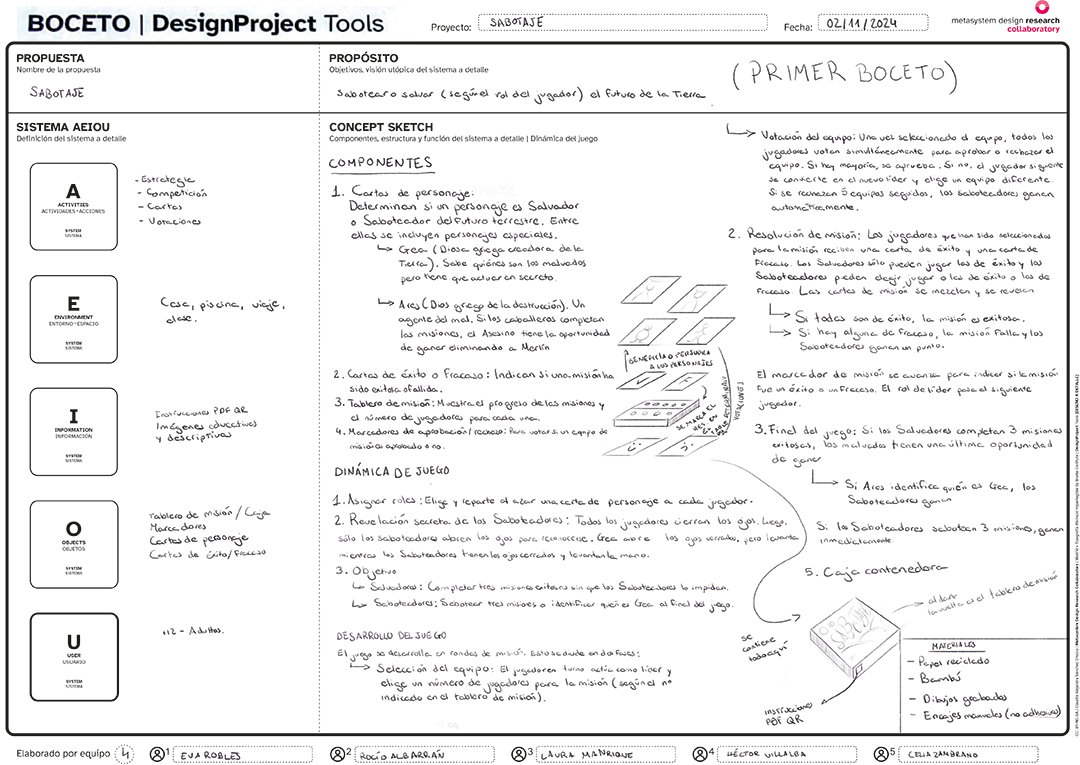 BOCETO | DesignProject Tools
Proyecto: SABOTAJE
Fecha: 02/11/2024
metasystem design research
collaboratory
PROPUESTA
Nombre de la propuesta
SABOTAJE
PROPÓSITO
Objetivos, visión utópica del sistema a detalle
Sabotear o salvar (según el rol del jugador) el futuro de la Tierra
(PRIMER BOCETO)
SISTEMA AEIOU
Definición del sistema a detalle
A
ACTIVITIES
ACTIVIDADES+ACCIONES
SYSTEM
SISTEMA
- Estrategia
- Competición
- Cartas
- Votaciones
E
ENVIRONMENT
ENTORNO+ESPACIO
SYSTEM
SISTEMA
Casa, piscina, viaje,
clase.
I
INFORMATION
INFORMACIÓN
SYSTEM
SISTEMA
Instrucciones PDF QR
Imágenes educativas
y descriptivas
O
OBJECTS
OBJETOS
SYSTEM
SISTEMA
Tablero de misión / Caja
Marcadores
Cartas de personaje
Cartas de Éxito/Fracaso
U
USER
USUARIO
SYSTEM
SISTEMA
+12 - Adultos.
CONCEPT SKETCH
Componentes, estructura y función del sistema a detalle | Dinámica del juego
COMPONENTES
1. Cartas de personaje:
Determinan si un personaje es Salvador
o Saboteador del futuro terrestre. Entre
ellas se incluyen personajes especiales.
Gea (Diosa griega creadora de la
Tierra). Sabe quiénes son los malvados
pero tiene que actuar en secreto.
Ares (Dios griego de la destrucción). Un
agente del mal. Si los caballeros completan
las misiones, el Asesino tiene la oportunidad
de ganar eliminando a Merlín
2. Cartas de éxito o Fracaso: Indican si una misión ha
sido exitosa o fallida.
3. Tablero de misión: Muestra el progreso de las misiones y
el número de jugadores para cada una.
4. Marcadores de aprobación/rechazo: Para votar si un equipo de
misión es aprobado o no.
BENEFICIA O PERJUDICA
A LOS PERSONAJES
SE MARCA EL
VOTACIONES
DINÁMICA DE JUEGO
1. Asignar roles: Elige y reparte al azar una carta de personaje a cada jugador.
2. Revelación secreta de los Saboteadores: Todos los jugadores cierran los ojos. Luego,
sólo los saboteadores abren los ojos para reconocerse. Gea abre los ojos cerrados, pero levanta
mientras los Saboteadores tienen los ojos cerrados y levantan la mano.
3. Objetivo
Salvadores: Completar tres misiones exitosas sin que los Saboteadores lo impidan.
Saboteadores: Sabotear tres misiones o identificar quién es Gea al final del juego.
DESARROLLO DEL JUEGO
El juego se desarrolla en rondas de misión. Esto se divide en dos fases:
Selección del equipo: El jugador en turno actúa como líder y
elige un número de jugadores para la misión (según el nº
indicado en el tablero de misión).
Votación del equipo: Una vez seleccionado el equipo, todos los
jugadores votan simultáneamente para aprobar o rechazar el
equipo. Si hay mayoría, se aprueba. Si no, el jugador siguiente
se convierte en el nuevo líder y elige un equipo diferente.
Si se rechazan 5 equipos seguidos, los saboteadores ganan
automáticamente.
2. Resolución de misión: Los jugadores que han sido seleccionados
para la misión reciben una carta de éxito y una carta de
Fracaso. Los Salvadores sólo pueden jugar las de éxito y los
Saboteadores pueden elegir jugar o las de éxito o las de
fracaso. Las cartas de misión se mezclan y se revelan
Si todas son de éxito, la misión es exitosa.
Si hay alguna de Fracaso, la misión falla y los
Saboteadores ganan un punto.
El marcador de misión se avanza para indicar si la misión
fue un éxito o un Fracaso. El rol de líder pasa al siguiente
jugador.
3. Final del juego: Si los Salvadores completan 3 misiones
exitosas, los malvados tienen una última oportunidad
de ganar
Si Ares identifica quién es Gea, los
Saboteadores ganan
Si los Saboteadores sabotean 3 misiones, ganan
inmediatamente.
5. Caja contenedora
al dar
la vuelta es el tablero de misión
SABOTAJE
se
contiene
todo aquí
instrucciones
PDF QR
MATERIALES
- Papel reciclado
- Bambú
- Dibujos grabados
- Encajes manuales (no adhesivo)
Elaborado por equipo 4
1 EVA ROBLES
2 ROCÍO ALBARRÁN
3 LAURA MANRIQUE
4 HÉCTOR VILLALBA
5 CELIA ZAMBRANO